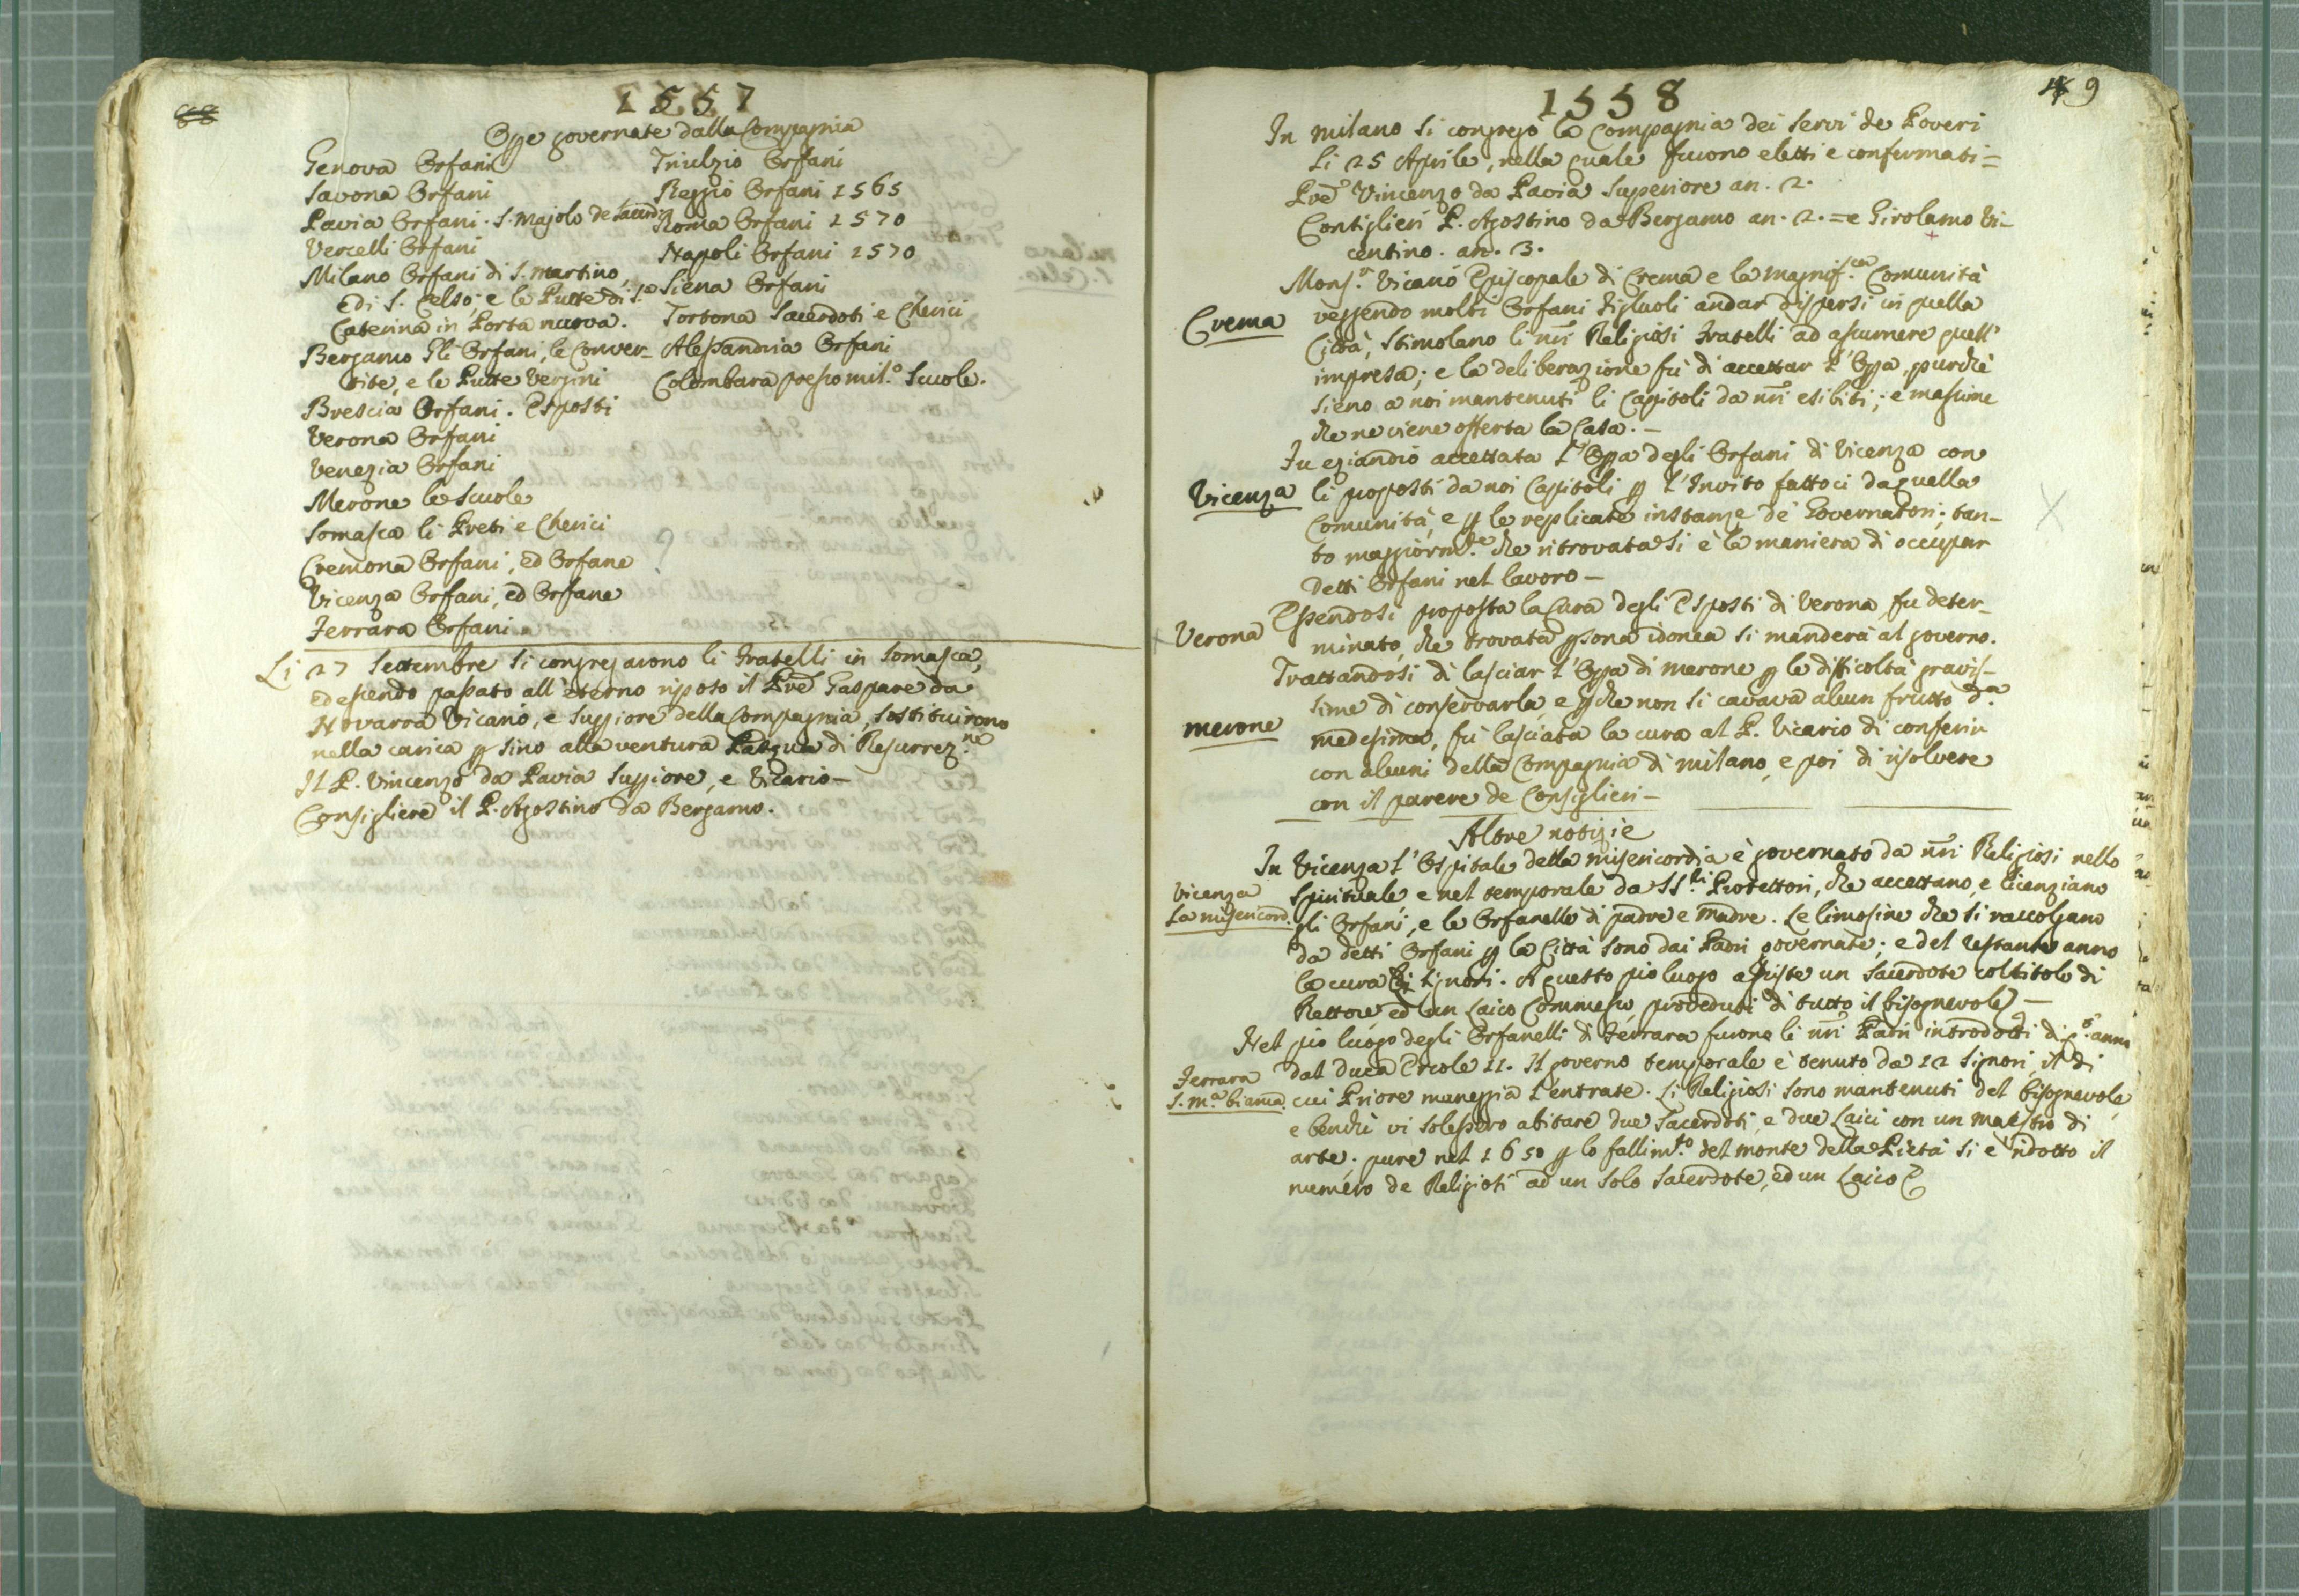 1557
Ope governate dalla Compagnia
Genova Orfani
Savona Orfani
Pavia Orfani. S. Majolo de Sacerdi
Vercelli Orfani
Milano Orfani di S. Martino,
e di S. Celso, e le Putte di S.a
Caterina in Porta nuova.
Bergamo Gli Orfani, le Conver-
tite, e le Putte Vergini
Brescia Orfani. Esposti
Verona Orfani
Venezia Orfani
Merone le Scuole
Somasca li Preti e Cherici
Cremona Orfani, ed Orfane
Vicenza Orfani, ed Orfane
Ferrara Orfani
Triulzio Orfani
Reggio Orfani 1565
Roma Orfani 1570
Napoli Orfani 1570
Siena Orfani
Tortona Sacerdoti e Cherici
Alessandria Orfani
Colombara presso Mil.o Scuole.
Li 27 Settembre si congregarono li Fratelli in Somasca,
ed essendo passato all'eterno riposo il Pre Gaspare da
Novarra Vicario, e Suppiore della Compagnia, sostituirono
nella carica p sino alla ventura Pasqua di Resurrez.ne
Il P. Vincenzo da Pavia Suppiore, e Vicario-
Consigliere il P. Agostino da Bergamo.
9
1558
In Milano si congregò la Compagnia dei Servi de Poveri
li 25 Aprile, nella quale furono eletti e confermati=
Pre Vincenzo da Pavia Superiore an. 2.
Consiglieri P. Agostino da Bergamo an. 2. = e Girolamo Vi-
centino. an. 3.
Crema
Mons.r Vicario Episcopale di Crema e la Magnif.ca Comunità
veggendo molti Orfani figluoli andar dispersi in quella
Città, stimolano li nri Religiosi Fratelli ad assumere quell'
impresa; e la deliberazione fù di accettar l'Opa, purchè
sieno a noi mantenuti li Capitoli da nri esibiti; e massime
che ne viene offerta la Casa.-
Vicenza
Fu eziandio accettata l'Opa degli Orfani di Vicenza con
li proposti da noi Capitoli p l'Invito fattoci da quella
Comunità, e p le replicate instanze de' Governatori; tan-
to maggiorm.te che ritrovata si è la maniera di occupar
detti Orfani nel lavoro-
Verona
Essendosi proposta la Cura degli Esposti di Verona fu deter-
minato, che trovata psona idonea si manderà al governo.
merone
Trattandosi di lasciar l'Opa di Merone p le difficoltà gravis-
sime di conservarla, e pchè non si cavava alcun frutto d.a
medesima, fù lasciata la cura al P. Vicario di conferir
con alcuni della Compagnia di Milano, e poi di risolvere
con il parere de Consiglieri-
Altre notizie
Vicenza
La misericord.
In Vicenza l'Ospitale della Misericordia è governato da nri Religiosi nello
Spirituale, e nel temporale da SS.ri Protettori, che accettano, e licenziano
gli Orfani, e le Orfanelle di padre e madre. Le limosine che si raccolgano
da detti Orfani p la Città sono dai Padri governate; e del restante anno
la cura li Signori. A questo pio luogo assiste un Sacerdote col titolo di
Rettore, ed un Laico Commesso, proveduti di tutto il bisognevole-
Ferrara
S. M.a bianca.
Nel pio luogo degli Orfanelli di Ferrara furono li nri Padri introdotti di anno
dal Duca Ercole II. Il governo temporale è tenuto da 12 Signori, il di
cui Priore maneggia l'entrate. Li Religiosi sono mantenuti del bisognevole,
e benchè vi solessero abitare due Sacerdoti, e due Laici con un Maestro di
arte. pure nel 1650 p lo fallim.to del monte della Pietà si è ridotto il
numero de Religiosi ad un solo Sacerdote, ed un Laico